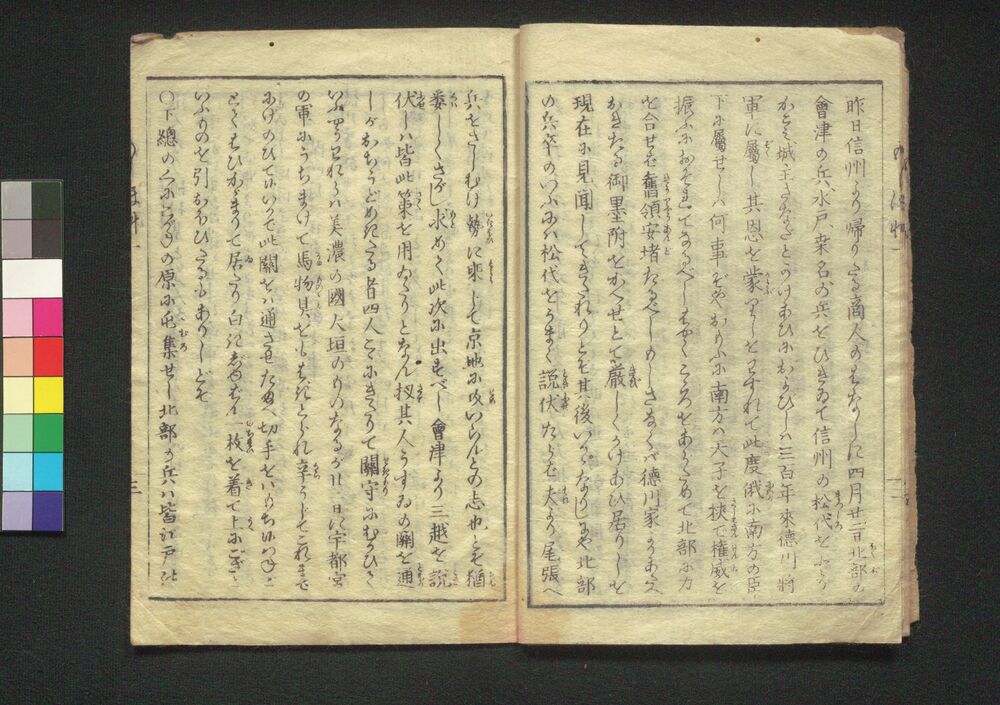 昨日信州より帰りたる商人のはなしに四月廿二日北部の
會津の兵水戸桒名の兵をひきゐて信州の松代をふとり
かとミ城主さなだとかけあひにおよびしハ三百年來徳川將
軍に屬し其恩を蒙りしをわすれて此度俄に南方の臣
下に屬せしハ何事ぞやおもふに南方ハ天子を挾て權威を
振ふにおそれてなるべしはやくこころをあらためて北部に力
を合せなバ舊領安堵たるべしもしさなくバ德川家よりあたへ
おきたる御墨附をかへせとて嚴しくかけあひ居りしを
現在に見聞してきたれりとぞ其後いかゞなりしにや北部
の兵卒のいふにハ松代をうまく說伏たらバ夫より尾張へ
兵をさしむけ勢に乘じて京地に攻いらんとの志也とぞ猶
委しくさぐり求めて此次に出すべし會津より三越を說
伏しハ皆此策を用ゐたりとなん扨其人うすゐの關を通
しがおちうどめきたる者四人こゝにきたりて關守にむかひさて
いふやうわれらハ美濃の國大垣のものなるが廿一日に宇都宮
の軍にうちまけて馬物具をもはぎとられ辛うじてこれまで
にげのびてにハいかで此關をバ通させたまへ切手をバもちはべらねと
とてもひかゞまりて居たり白きじゆばん一枚を着て上にござと
いふものを引おほひたるもありしとぞ
○下總のくにこがねの原に屯集せし北部の兵ハ皆江戶の